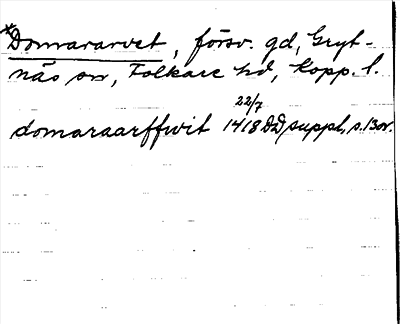 *Domararvet, försv. gd, Gryt-
näs sn, Folkare hd, Kopp. l.
domaraarffwit 22/7 1418 DD suppl, s. 130r.